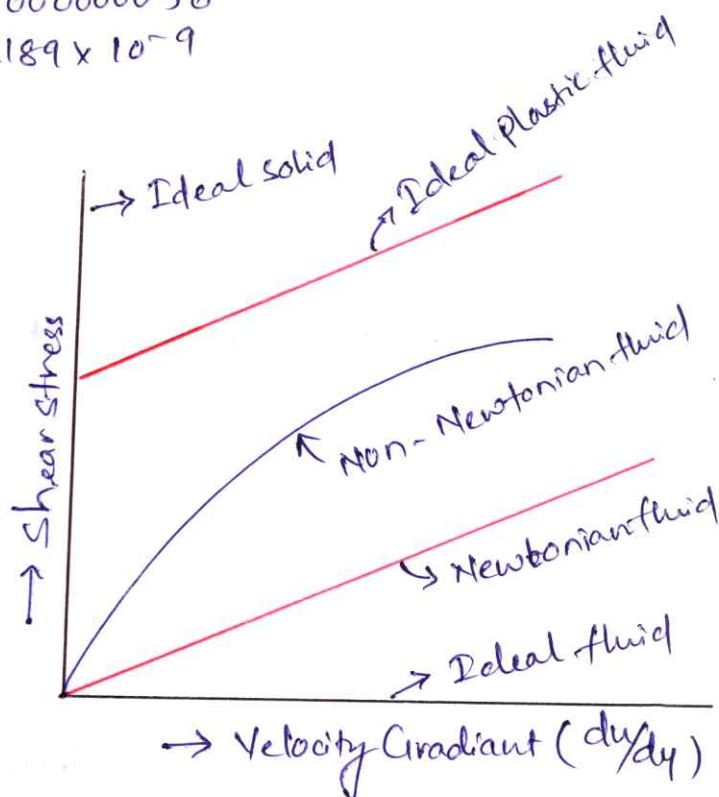 189 x 10-9
→ Ideal solid
Ideal plastic fluid
→ Shear stress
Non-Newtonian fluid
Newtonian fluid
→ Ideal fluid
→ Velocity Gradiant (du/dy)